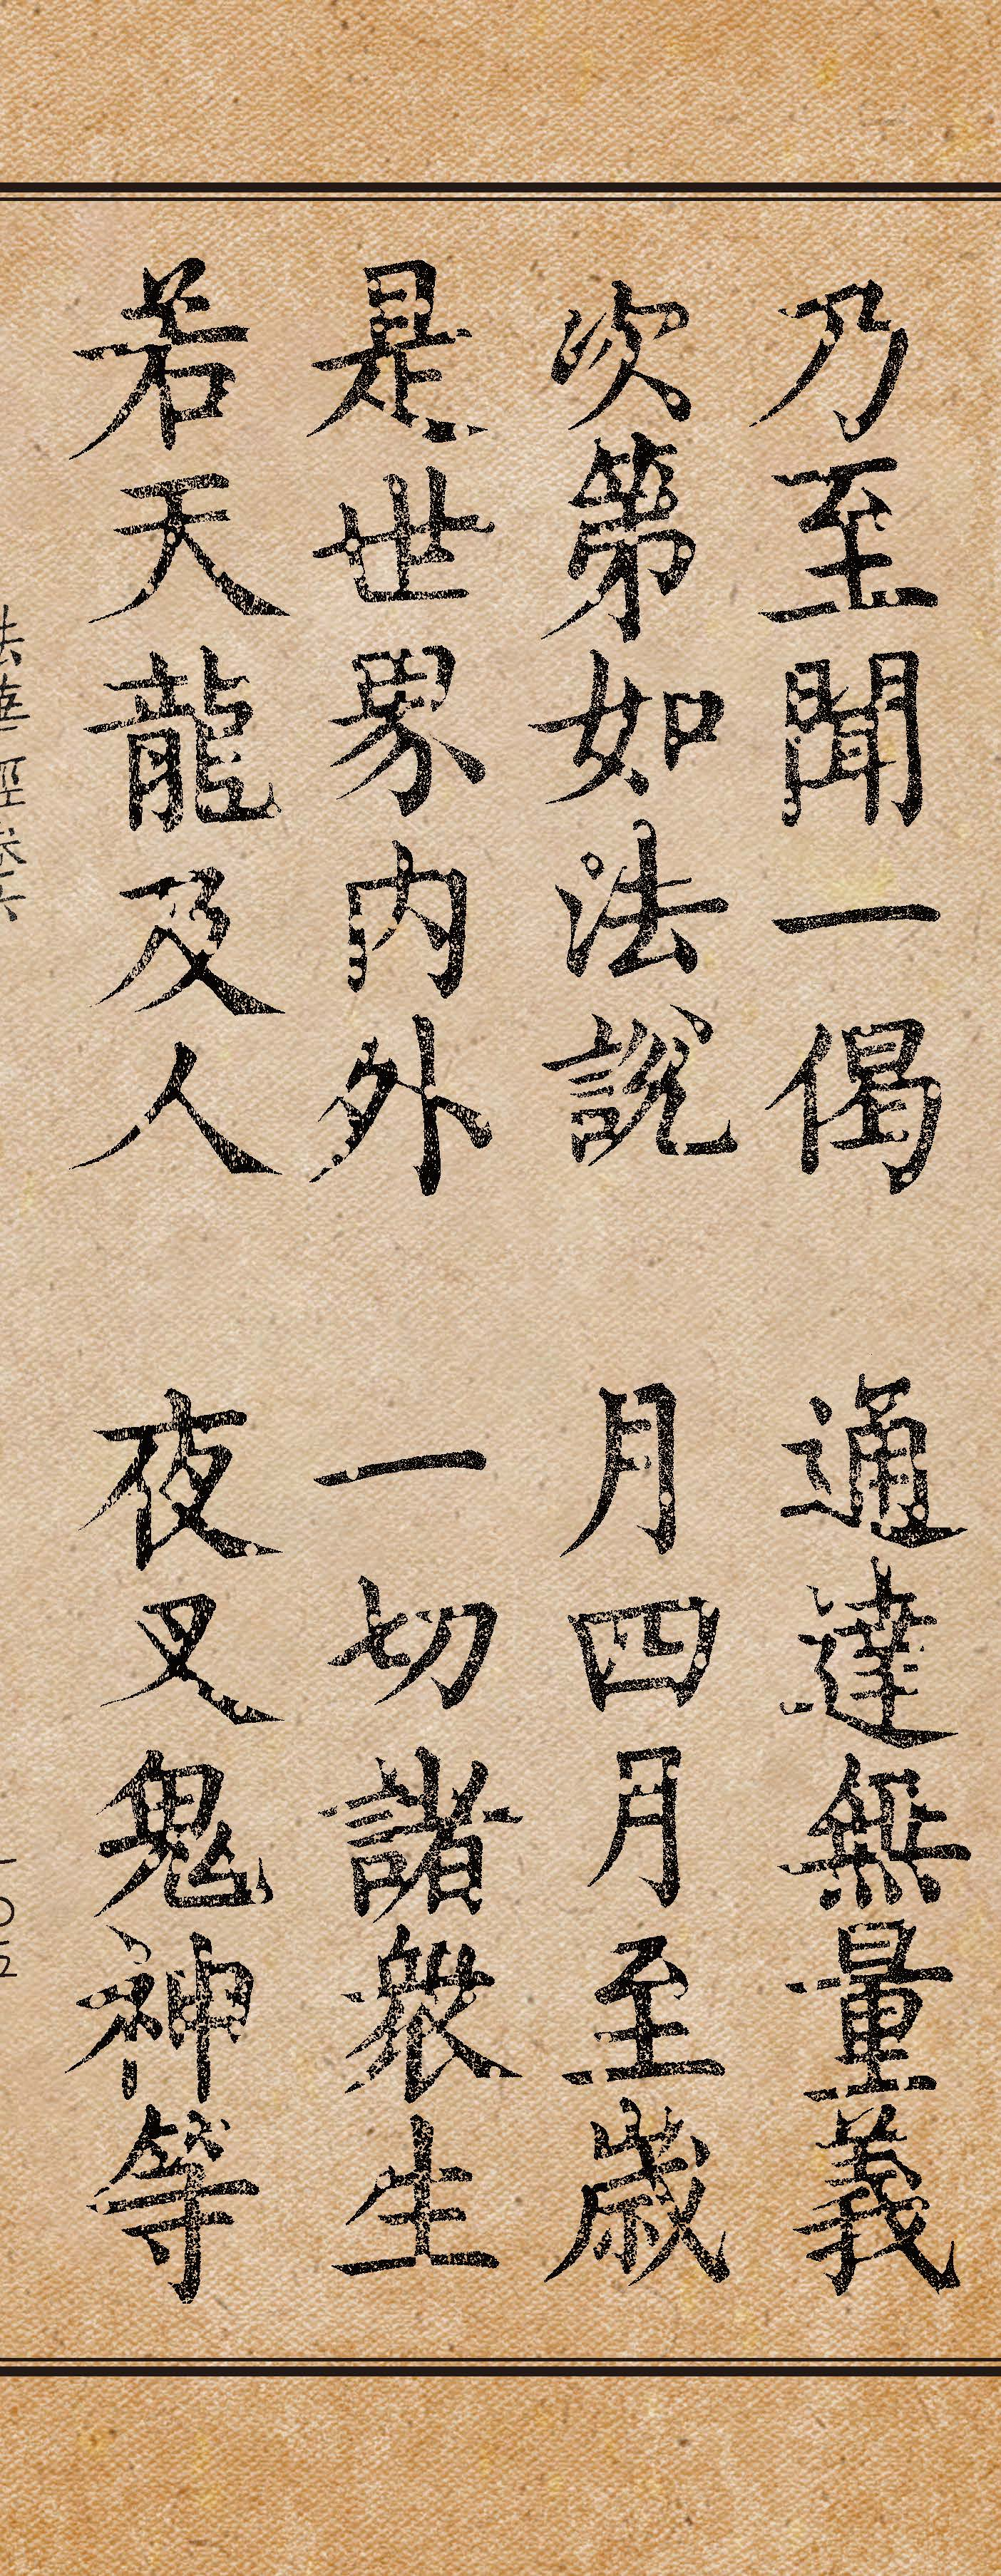 乃至聞一偈　通達無量義
次第如法說　月四月至歲
是世界內外　一切諸眾生
若天龍及人　夜叉鬼神等
法華經卷六